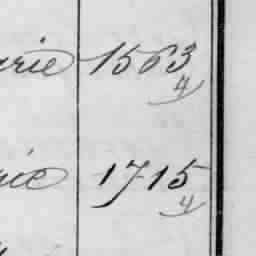 arie 1563
4
rie 1715
4